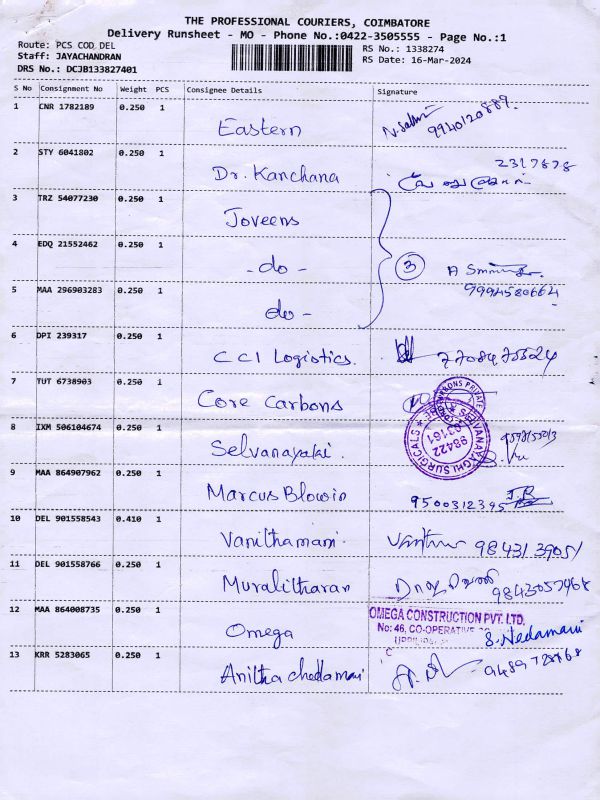 THE PROFESSIONAL COURIERS, COIMBATORE
Delivery Runsheet - MO - Phone No.:0422-3505555 - Page No.:1
Route: PCS COD DEL
RS No.: 1338274
Staff: JAYACHANDRAN
RS Date: 16-Mar-2024
DRS No.: DCJB133827401
S No Consignment No Weight PCS Consignee Details Signature
1 CNR 1782189 0.250 1 Eastern 9940120889.
2 STY 6041802 0.250 1 Dr. Kanchana 2317878
3 TRZ 54077230 0.250 1 Joveens
4 EDQ 21552462 0.250 1 - do - 3
5 MAA 296903283 0.250 1 do -
6 DPI 239317 0.250 1 CCI Logistics.
7 TUT 6738903 0.250 1 Core Carbons
8 IXM 506104674 0.250 1 Selvanayaki. SELVANAYAGHI SURGICALS 98422
9 MAA 864907962 0.250 1 Marcus Blowin 9500312395
10 DEL 901558543 0.410 1 Vanithamani. 98431 39051
11 DEL 901558766 0.250 1 Muralitharan
12 MAA 864008735 0.250 1 Omega OMEGA CONSTRUCTION PVT. LTD.
No: 46, CO-OPERATIVE
S. Nedamani
13 KRR 5283065 0.250 1 Anitha chedamani